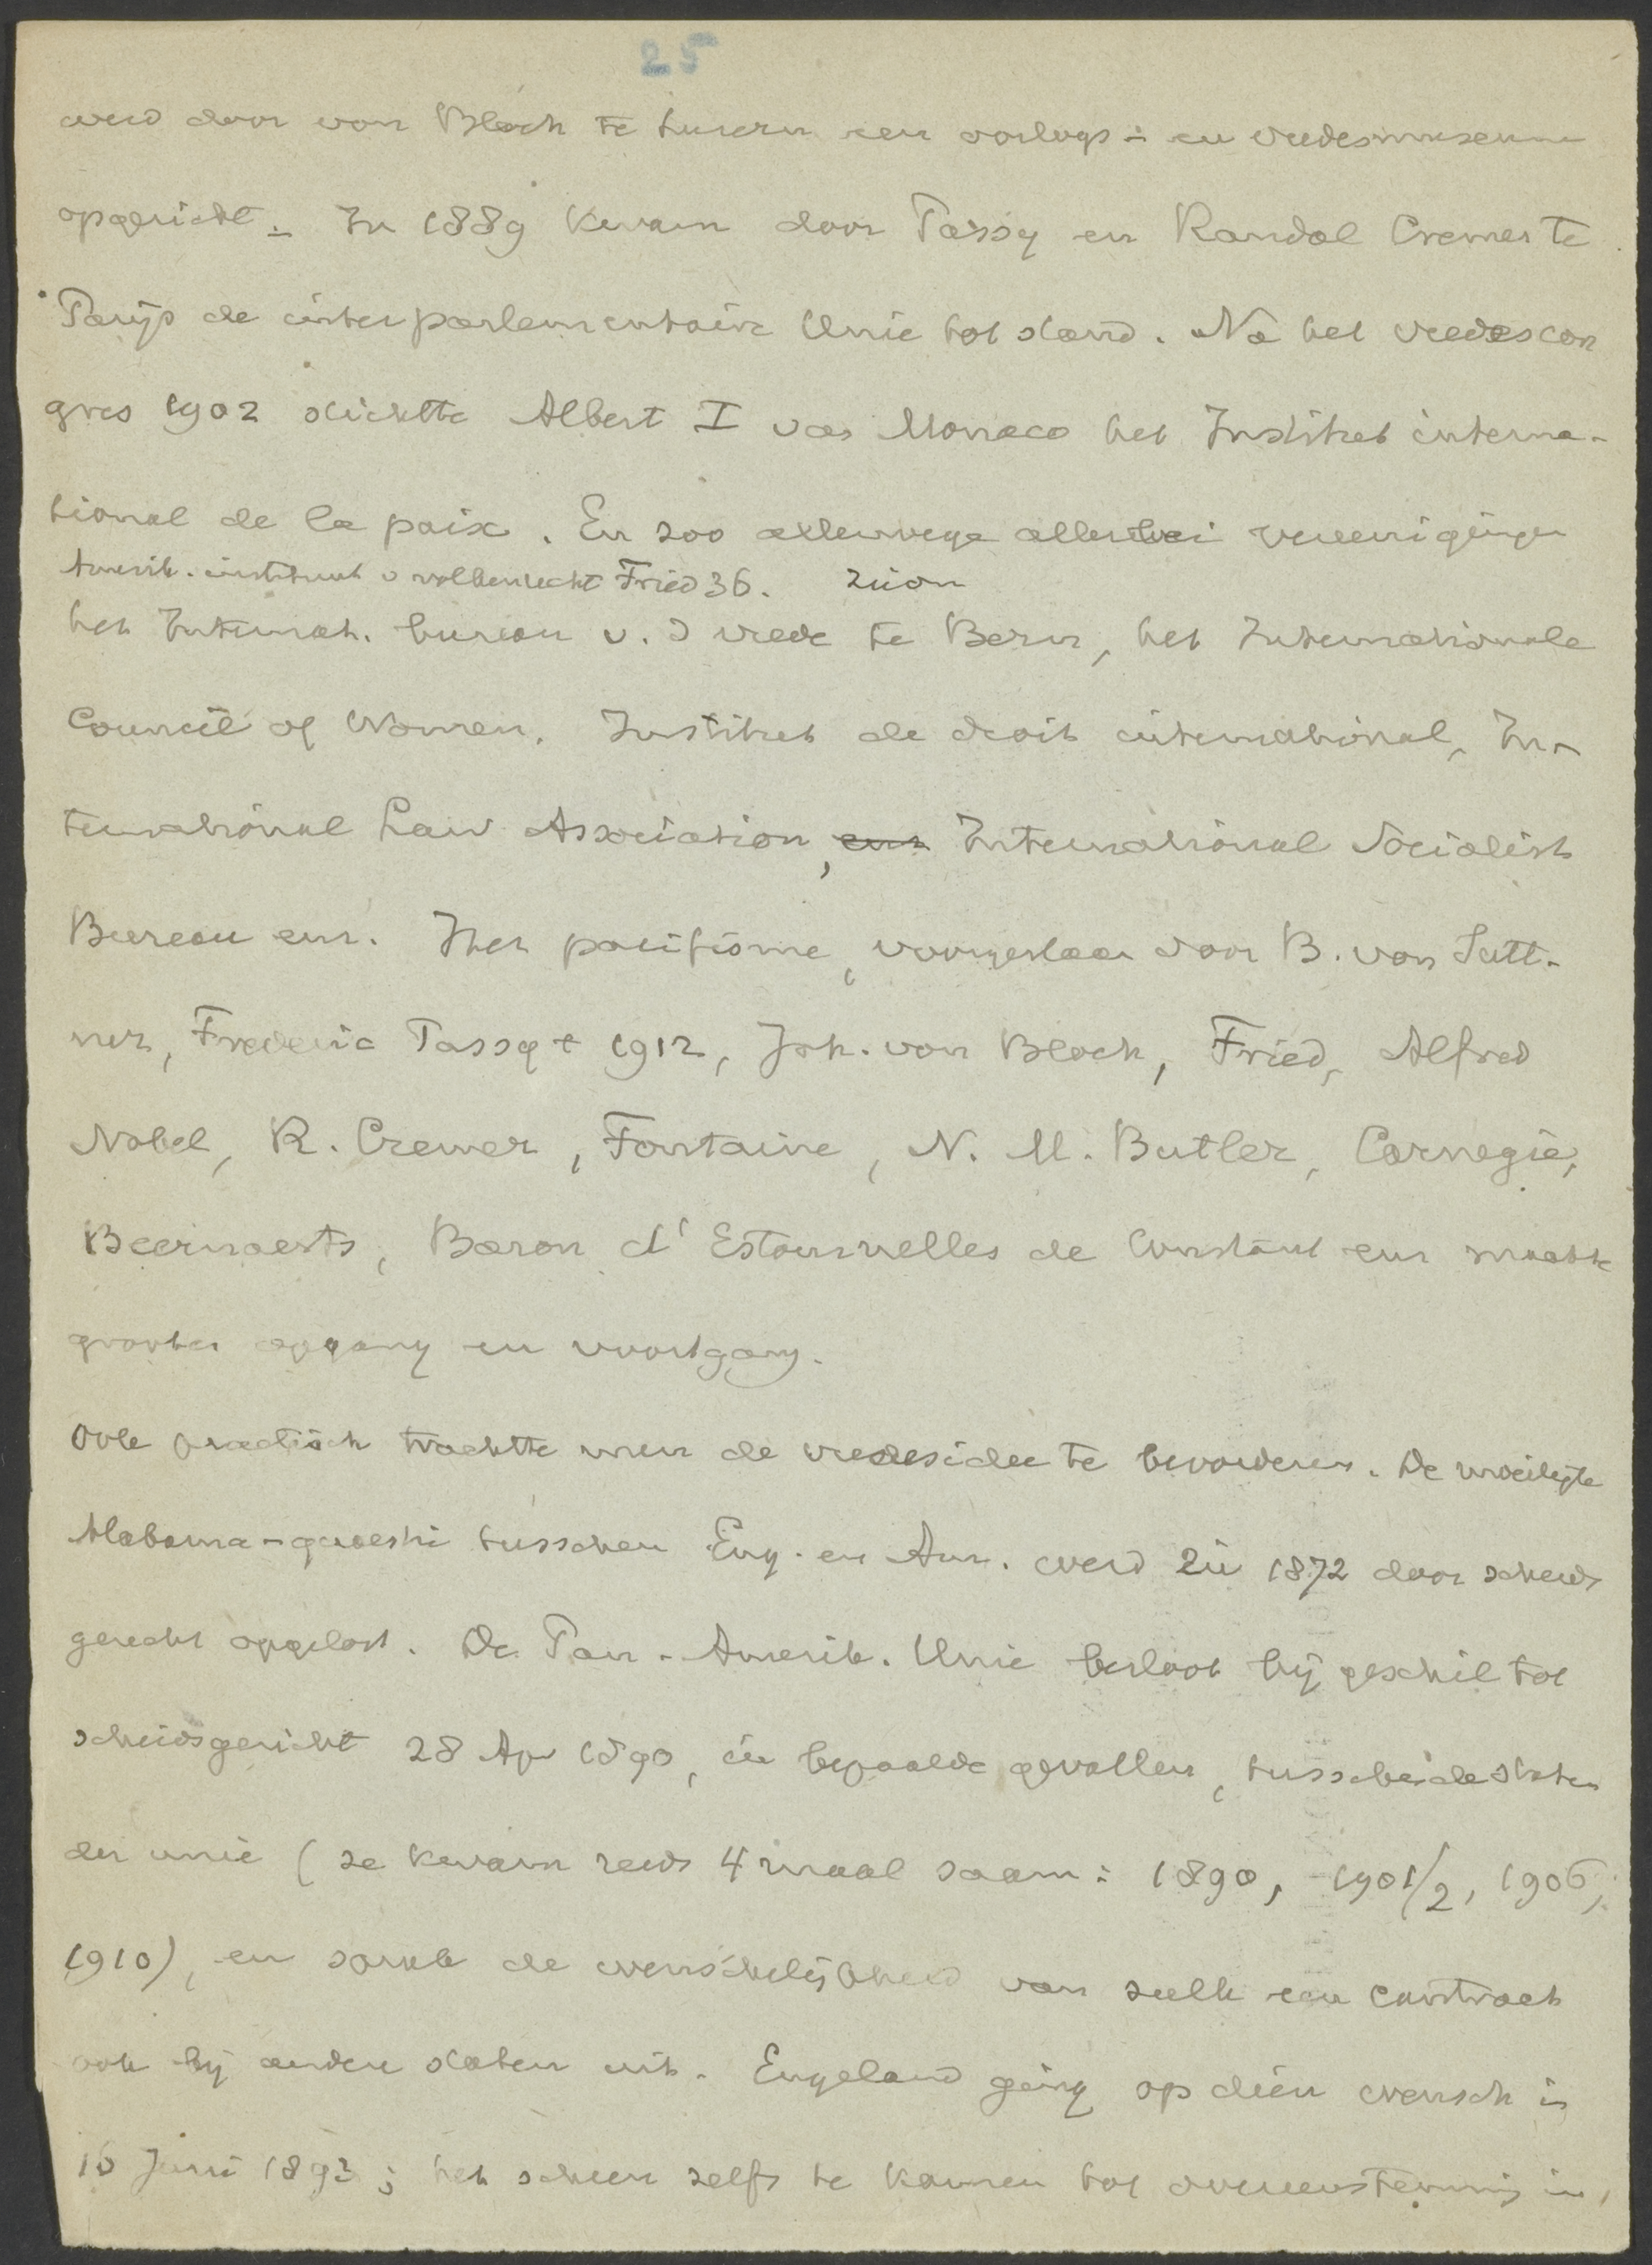 25
werd door von Bloch te Luzern een oorlogs- en vredesmuseum
opgericht. In 1889 kwam door Passy en Randal Cremer te
Parijs de interparlementaire Unie tot stand. Na het vredescon
gres 1902 stichtte Albert I van Monaco het Institut interna-
tional de la paix. En zoo allerwege allerlei vereenigingen
Amerik. instituut v volkenrecht Fried 36. Zion
het Internat. bureau v. d vrede te Bern, het Internationale
Council of Women, Institut de droit international, In-
ternational Law Association, enz International Socialist
Bureau enz. Het pacifisme, voorgestaan door B. von Sutt-
ner, Frederic Passy † 1912, Joh. von Bloch, Fried, Alfred
Nobel, R. Cremer, Fontaine, N. M. Butler, Carnegie,
Beernaerts, Baron d'Estournelles de Constant enz maakte
grooten opgang en voortgang.
Ook practisch trachtte men de vredesidee te bevorderen. De moeilijke
Alabama-quaestie tusschen Eng. en Am. werd in 1872 door scheids
gerecht opgelost. De Pan-Amerik. Unie besloot bij geschil tot
scheidsgericht 28 Apr 1890, in bepaalde gevallen, tusschen de staten
der unie (ze kwam reeds 4 maal saam: 1890, 1901/2, 1906,
1910), en sprak de wenschelijkheid van zulk een contract
ook bij andere staten uit. Engeland ging op dien wensch in
16 Juni 1893; het scheen zelfs te komen tot overeenstemming in,